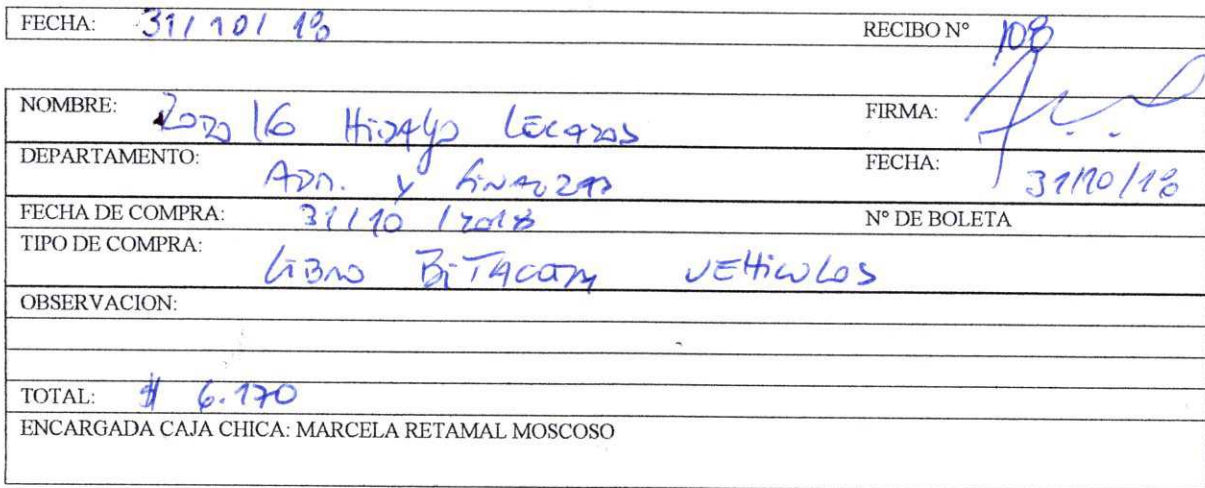 FECHA: 31/10/18 RECIBO N° 108
NOMBRE: Hidalgo Lecaros FIRMA:
DEPARTAMENTO: Adm. y Finanzas FECHA: 31/10/18
FECHA DE COMPRA: 31/10/2018 N° DE BOLETA
TIPO DE COMPRA: Libro Bitacora VEHiculos
OBSERVACION:
TOTAL: $ 6.170
ENCARGADA CAJA CHICA: MARCELA RETAMAL MOSCOSO